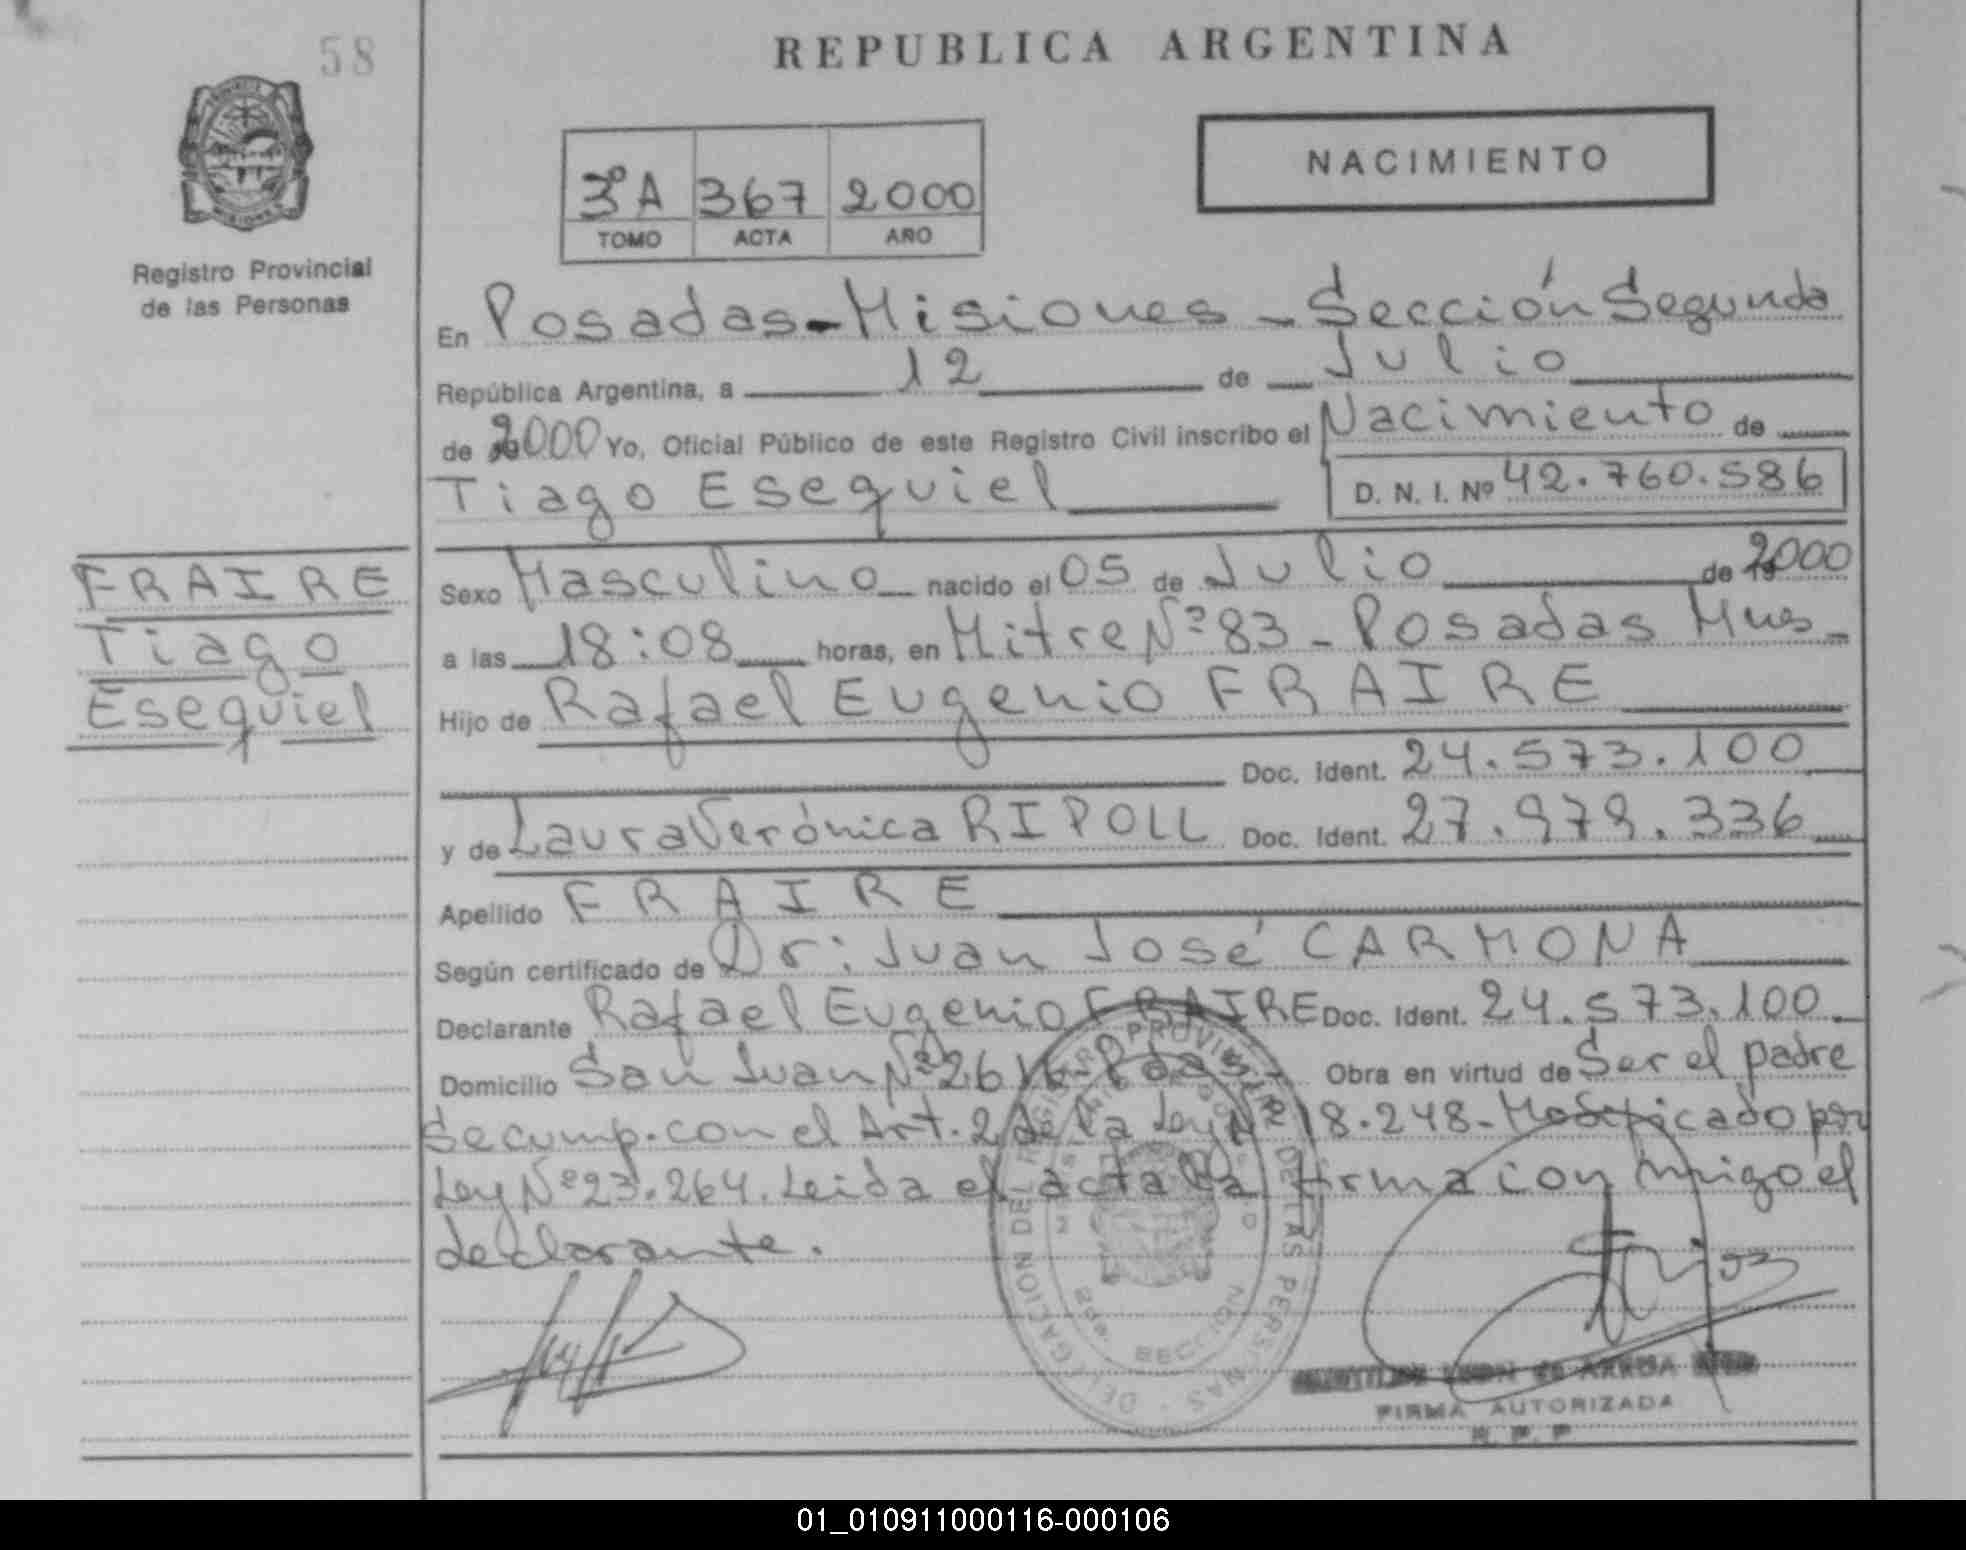 58
REPUBLICA ARGENTINA
NACIMIENTO
3º A 367 2000
TOMO ACTA AÑO
Registro Provincial
de las Personas
En Posadas - Misiones - Sección Segunda
República Argentina, a 12 de Julio
de 2000 Yo, Oficial Público de este Registro Civil inscribo el Nacimiento de
Tiago Esequiel D. N. I. Nº 42.760.586
FRAIRE
Tiago
Esequiel
Sexo Masculino nacido el 05 de Julio de 2000
a las 18:08 horas, en Mitre Nº 83 - Posadas Mnes -
Hijo de Rafael Eugenio FRAIRE
Doc. Ident. 24.573.100
y de Laura Verónica RIPOLL Doc. Ident. 27.979.336
Apellido FRAIRE
Según certificado de Dr: Juan José CARMONA
Declarante Rafael Eugenio FRAIRE Doc. Ident. 24.573.100.
Domicilio San Juan Nº 2616 - Pdas - Obra en virtud de Ser el padre
Se cump. con el Art. 2 de la Ley Nº 18.248 - Modificado por
Ley Nº 23.264. Leida el acta la firma con migo el
declarante.
DELEGACION DEL REGISTRO PROVINCIAL DE LAS PERSONAS
SECCION
LEON de ARRUA
FIRMA AUTORIZADA
01_010911000116-000106